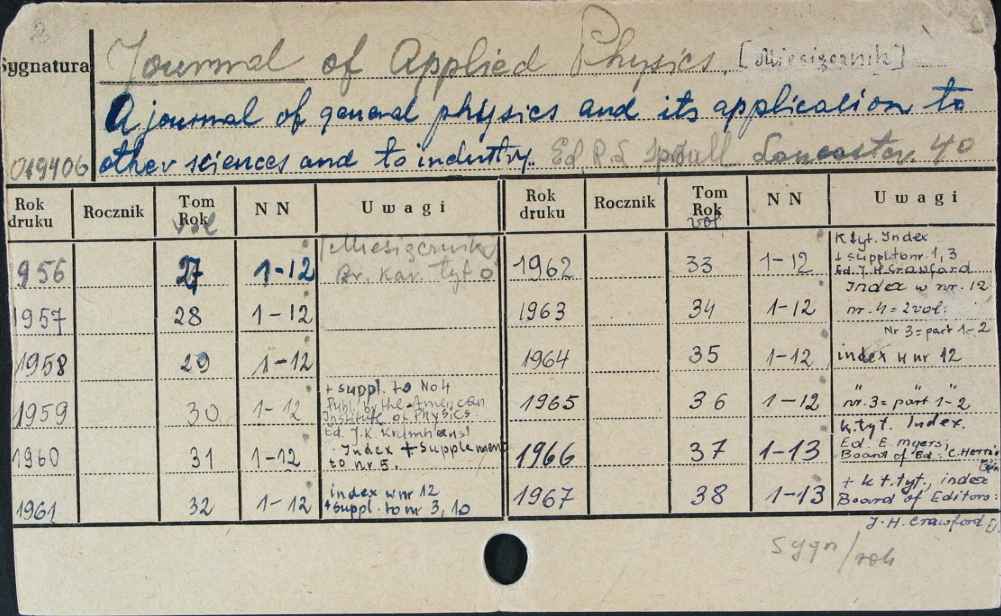 Sygnatura
Journal of Applied Physics. [Miesięcznik]
A journal of general physics and its application to
019406 other sciences and to industry. Ed. Lancaster. 40
Rok druku Rocznik Tom Rok vol N N Uwagi
1956 27 1-12 Miesięcznik
Br. Kar. tyt
1957 28 1-12
1958 29 1-12
1959 30 1-12 + suppl. to No 4
Publ. by the American
Institute of Physics.
Ed. J.K.
1960 31 1-12 Index + Supplement
to nr 5.
1961 32 1-12 index w nr 12
+ suppl. to nr 3, 10
Rok druku Rocznik Tom Rok vol N N Uwagi
1962 33 1-12 K. tyt. Index
+ suppl. to nr. 1, 3
Ed. J. H. Crawford
1963 34 1-12 Index w nr. 12
nr. 4 = 2 vol.
Nr 3 = part 1-2
1964 35 1-12 index w nr 12
1965 36 1-12 " " "
nr. 3 = part 1-2
1966 37 1-13 K. tyt. Index.
Ed. E. Myers,
Board of Ed.: C.
1967 38 1-13 + k t. tyt., index
Board of Editors:
J. H. Crawford
Sygn/rok